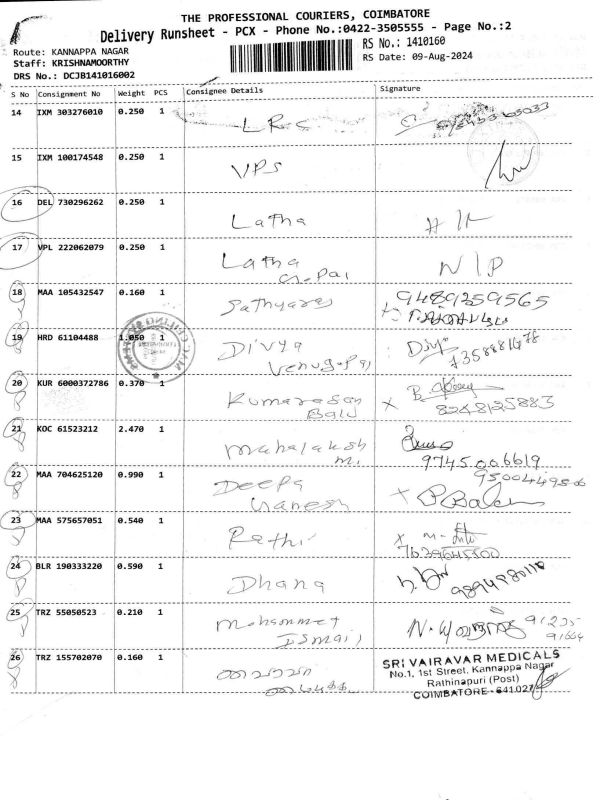 THE PROFESSIONAL COURIERS, COIMBATORE
Delivery Runsheet - PCX - Phone No.:0422-3505555 - Page No.:2
Route: KANNAPPA NAGAR
RS No.: 1410160
Staff: KRISHNAMOORTHY
RS Date: 09-Aug-2024
DRS No.: DCJB141016002
S No Consignment No Weight PCS Consignee Details Signature
14 IXM 303276010 0.250 1 LRC
15 IXM 100174548 0.250 1 VPS
16 DEL 730296262 0.250 1 Latha
17 VPL 222062079 0.250 1 Latha
N/P
18 MAA 105432547 0.160 1 9489259565
19 HRD 61104488 1.050 1 Divya
Venugopal
20 KUR 6000372786 0.370 1 Kumarasan
Balu 8248125883
21 KOC 61523212 2.470 1 Mahalaksh
mi. 9745006619
22 MAA 704625120 0.990 1 Deepa 9500449506
Ganesh
23 MAA 575657051 0.540 1 Rathi
7639645500
24 BLR 190333220 0.590 1 Dhana
25 TRZ 55050523 0.210 1 Mohammet
Ismail
26 TRZ 155702070 0.160 1 SRI VAIRAVAR MEDICALS
No.1, 1st Street, Kannappa Nagar
Rathinapuri (Post)
COIMBATORE - 641027